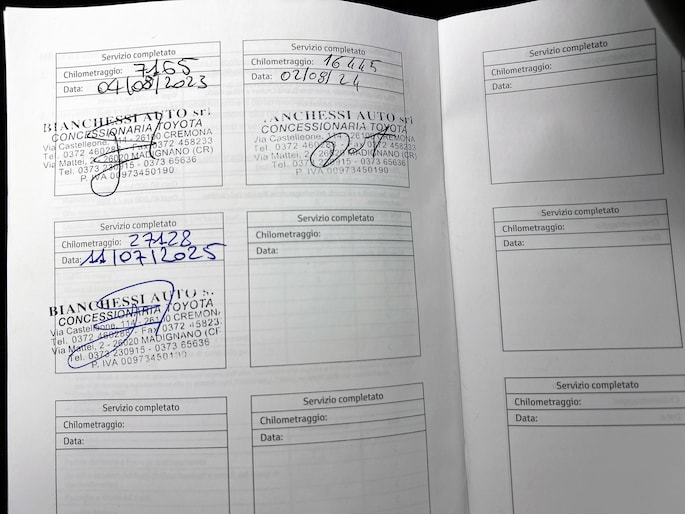 Servizio completato
Chilometraggio: 7165
Data: 04/08/2023
BIANCHESSI AUTO srl
CONCESSIONARIA TOYOTA
Via Castelleone, 114 - 26100 CREMONA
Tel. 0372 460288 - Fax 0372 458233
Via Mattei, 2 - 26020 MADIGNANO (CR)
Tel. 0373 230915 - 0373 65636
P. IVA 00973450190
Servizio completato
Chilometraggio: 16445
Data: 02/08/24
ANCHESSI AUTO srl
CONCESSIONARIA TOYOTA
Via Castelleone, 114 - 26100 CREMONA
Tel. 0372 460288 - Fax 0372 458233
Via Mattei, 2 - 26020 MADIGNANO (CR)
Tel. 0373 230915 - 0373 65636
P. IVA 00973450190
Servizio completato
Servizio completato
Chilometraggio: 27128
Data: 11/07/2025
BIANCHESSI AUTO s.
CONCESSIONARIA TOYOTA
Via Castelleone, 114 - 26100 CREMON
Tel. 0372 460288 - Fax 0372 458233
Via Mattei, 2 - 26020 MADIGNANO (CF
Tel. 0373 230915 - 0373 65636
P. IVA 00973450190
Servizio completato
Chilometraggio:
Data:
Servizio completato
Chilometraggio:
Data:
Servizio completato
Chilometraggio:
Data:
Servizio completato
Chilometraggio:
Data:
Servizio completato
Chilometraggio:
Data:
Chilometraggio:
Data: